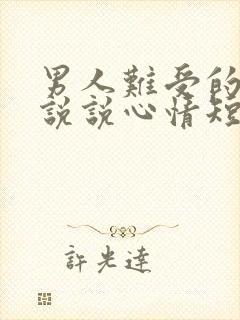 男人難受的
說說心情短
許光達